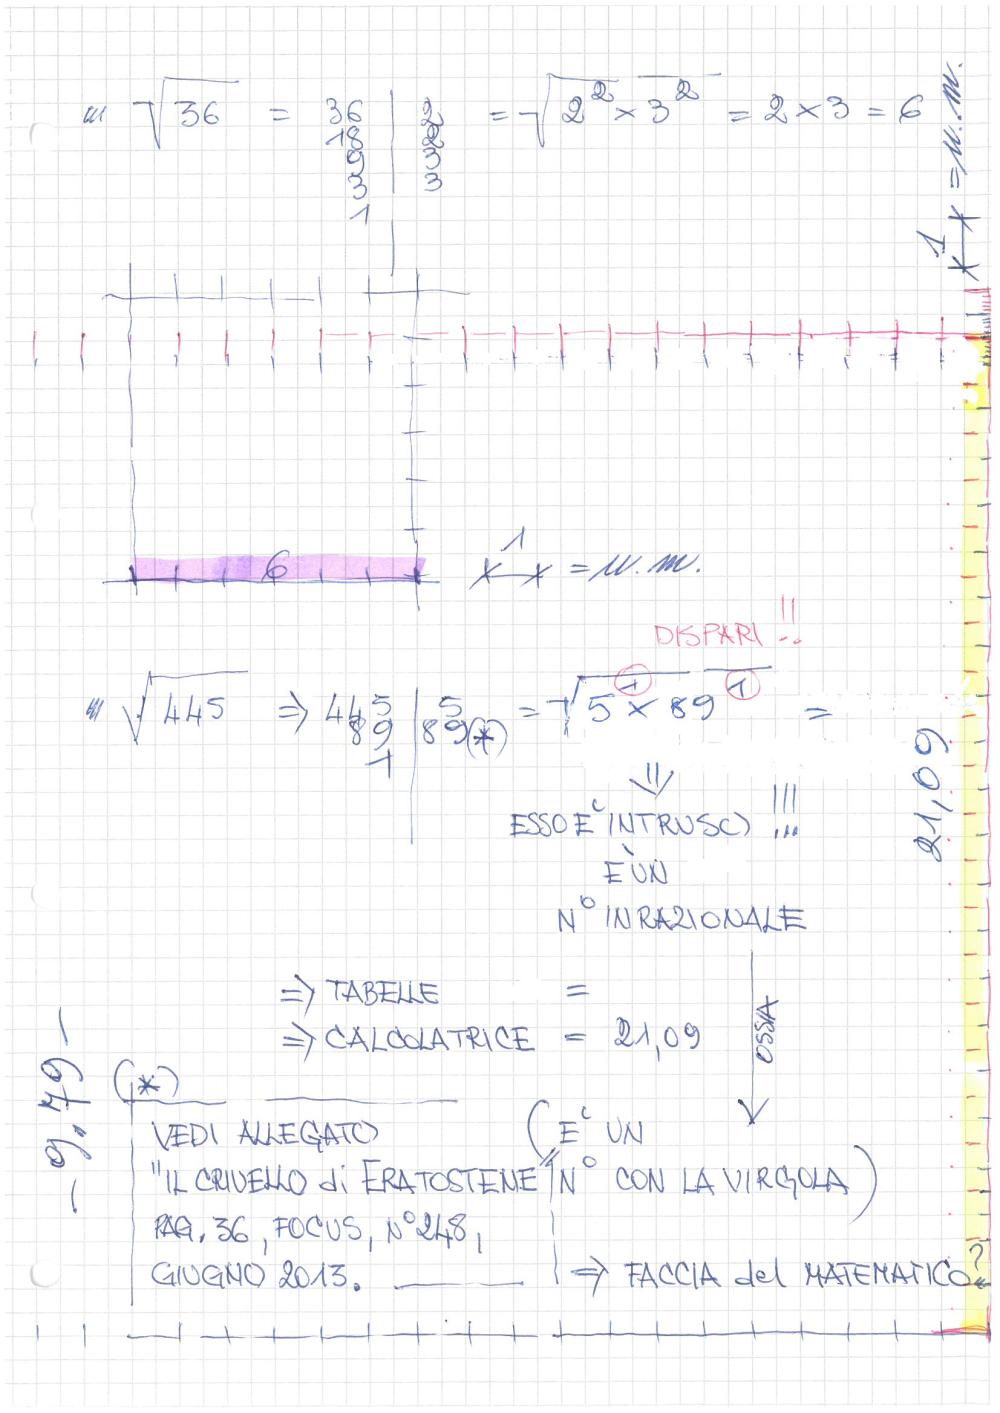 "' √36 = 36 | 2 = √2² × 3² = 2 × 3 = 6
18 | 2
9 | 3
3 | 3
1
1 = u.m.
6
1 = u.m.
DISPARI !!
"' √445 ⇒ 445 | 5 = √5¹ × 89¹ =
89 | 89(*)
1
21,09
⇓
ESSO E' INTRUSO !!!
È UN
N° INRAZIONALE
⇒ TABELLE =
⇒ CALCOLATRICE = 21,09
OSSIA
- 9.79 -
(*)
VEDI ALLEGATO
"IL CRIVELLO di ERATOSTENE"
PAG. 36, FOCUS, N° 248,
GIUGNO 2013.
(E' UN
N° CON LA VIRGOLA)
⇒ FACCIA del MATEMATICO?